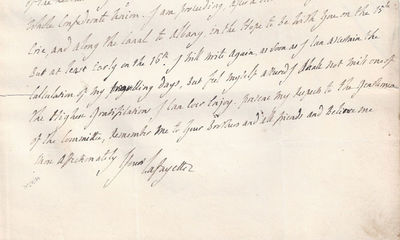 Whole Confederate Union. I am proceeding, after
Erie, and along the Canal to Albany, on the Hope to be with you on the 15th
But at least early on the 16th I will write again, as soon as I can ascertain the
Calculation of my travelling days, but feel myself assured I shall not miss one of
the Highest Gratifications I can ever enjoy. present my respects to the Gentlemen
of the Committee, remember me to your Brothers and all friends and Believe me
Most Affectionately Yours
Lafayette